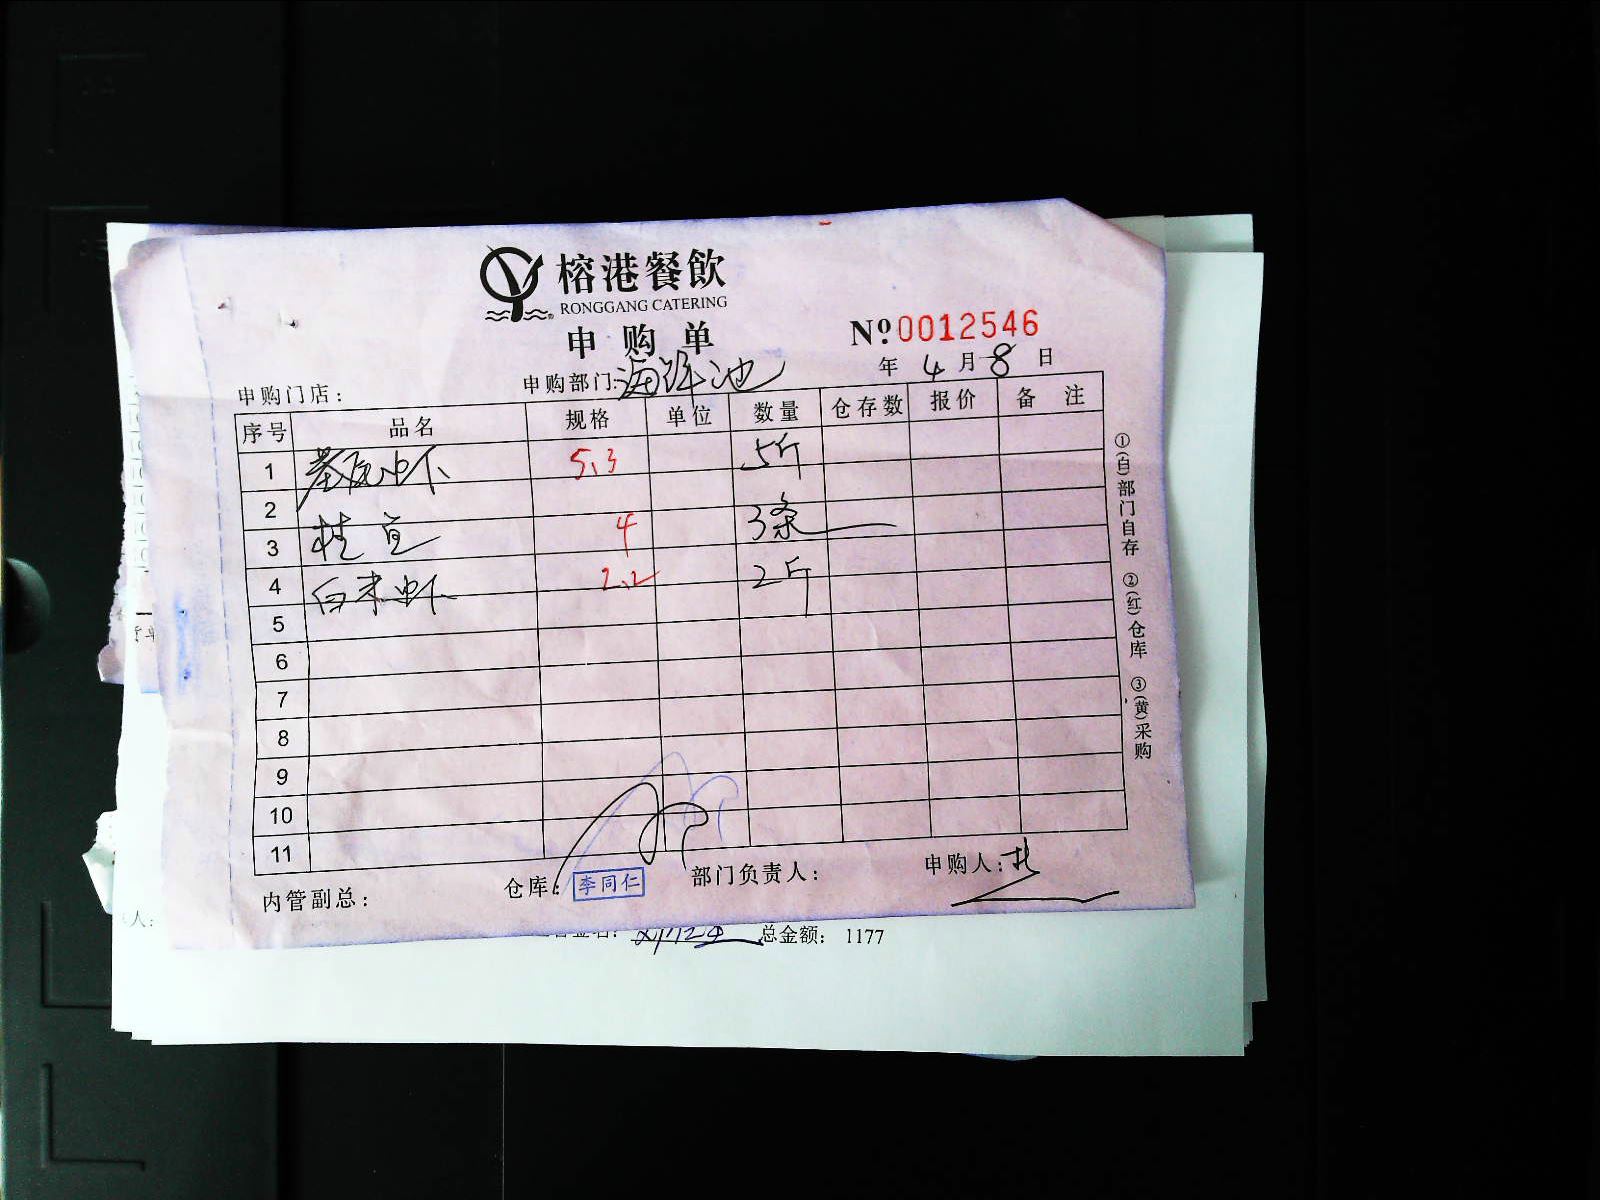 榕港餐飲
RONGGANG CATERING
申购单
№0012546
年 4 月 8 日
申购门店： 申购部门:海鲜池
序号 品名 规格 单位 数量 仓存数 报价 备注
1 基尾虾 5.3 5斤
2
3 桂鱼 4 3条
4 白米虾 2.2 2斤
5
6
7
8
9
10
11
内管副总： 仓库： 李同仁 部门负责人： 申购人：
①(白)部门自存 ②(红)仓库 ③(黄)采购
总金额： 1177